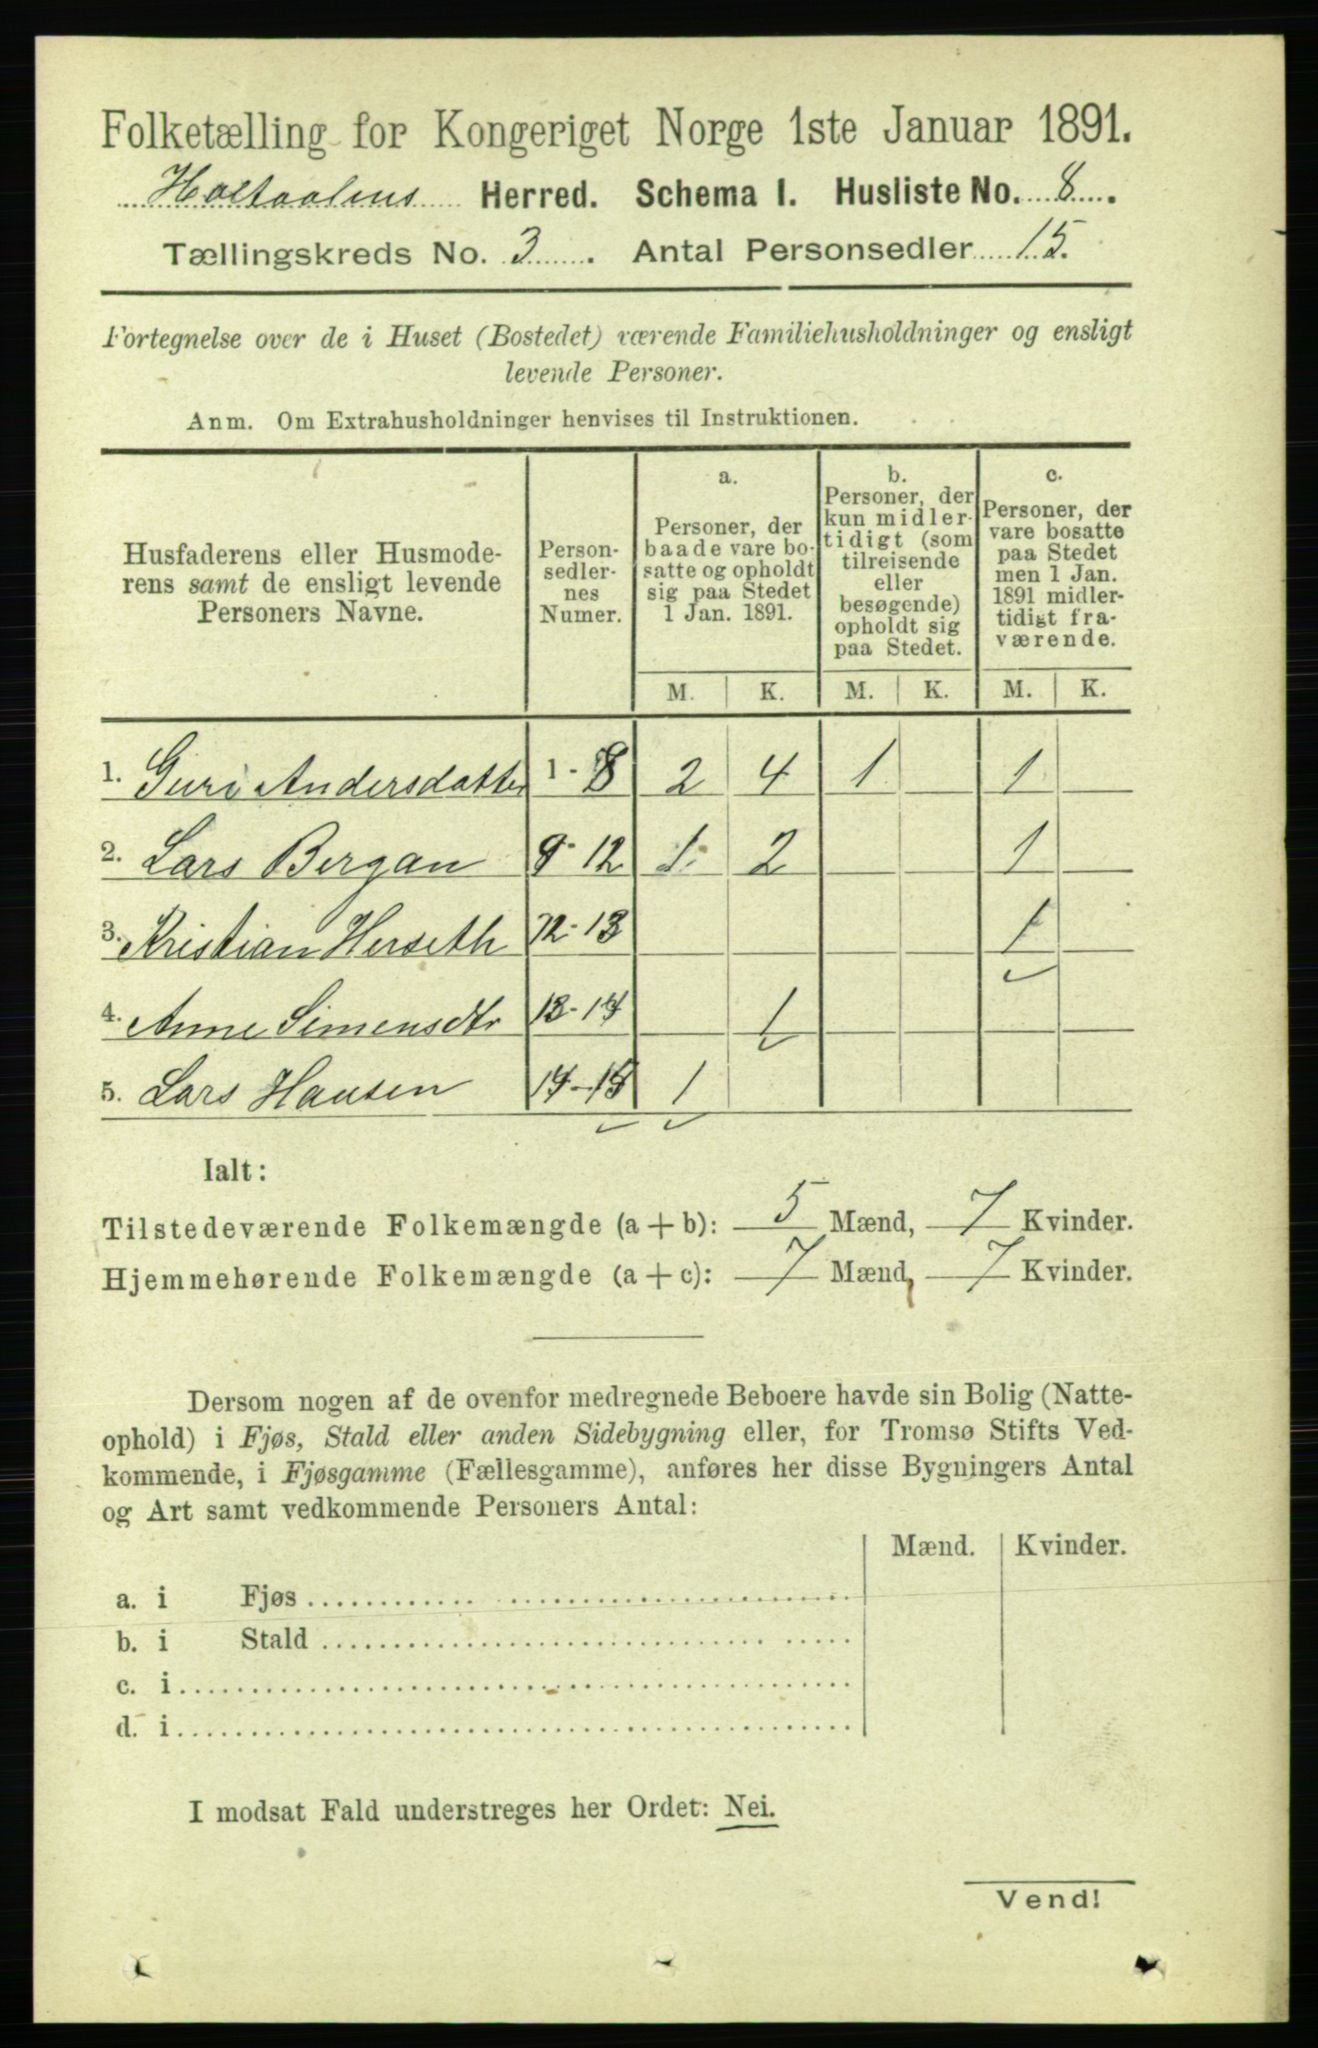 Folketælling for Kongeriget Norge 1ste Januar 1891.
Holtaalens Herred. Schema I. Husliste No. 8.
Tællingskreds No. 3. Antal Personsedler 15.
Fortegnelse over de i Huset (Bostedet) værende Familiehusholdninger og ensligt
levende Personer.
Anm. Om Extrahusholdninger henvises til Instruktionen.
Husfaderens eller Husmode-
rens samt de ensligt levende
Personers Navne.
Person-
sedler-
nes
Numer.
a.
Personer, der
baade vare bo-
satte og opholdt
sig paa Stedet
1 Jan. 1891.
b.
Personer, der
kun midler-
tidigt (som
tilreisende
eller
besøgende)
opholdt sig
paa Stedet.
c.
Personer, der
vare bosatte
paa Stedet
men 1 Jan.
1891 midler-
tidigt fra-
værende.
M. K. M. K. M. K.
1. Guri Andersdatter 1-8 2 4 1 1
2. Lars Bergan 9-12 1 2 1
3. Kristian Herseth 12-13 1
4. Anne Simensdtr 13-14 1
5. Lars Hansen 14-15 1
Ialt:
Tilstedeværende Folkemængde (a+b): 5 Mænd, 7 Kvinder.
Hjemmehørende Folkemængde (a+c): 7 Mænd, 7 Kvinder.
Dersom nogen af de ovenfor medregnede Beboere havde sin Bolig (Natte-
ophold) i Fjøs, Stald eller anden Sidebygning eller, for Tromsø Stifts Ved-
kommende, i Fjøsgamme (Fællesgamme), anføres her disse Bygningers Antal
og Art samt vedkommende Personers Antal:
Mænd. Kvinder.
a. i Fjøs
b. i Stald
c. i
d. i
I modsat Fald understreges her Ordet: Nei.
Vend!